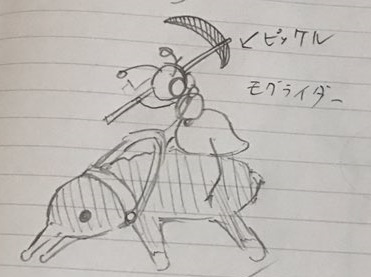 ピッケル
モグライダー